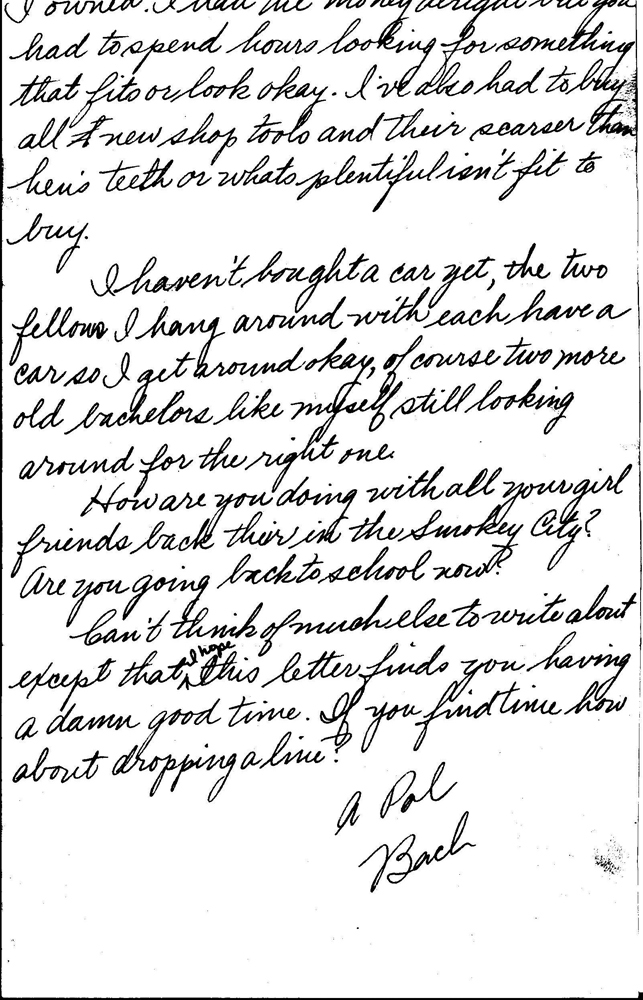 I owned. I had the money alright but you
had to spend hours looking for something
that fits or look okay. I've also had to buy
all new shop tools and their scarser than
hen's teeth or whats plentiful isn't fit to
buy.
I haven't bought a car yet, the two
fellows I hang around with each have a
car so I get around okay, of course two more
old bachelors like myself still looking
around for the right one.
How are you doing with all your girl
friends back their in the Smokey City?
Are you going back to school now?
Can't think of much else to write about
except that I hope this letter finds you having
a damn good time. If you find time how
about dropping a line?
A Pal
Bach